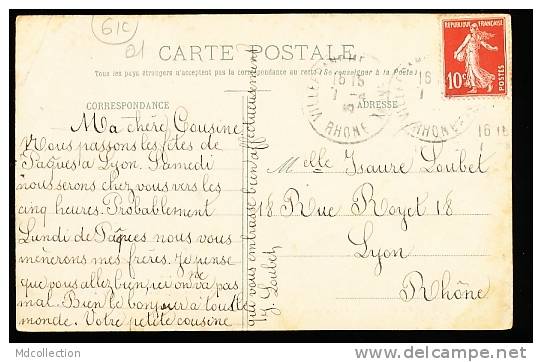 61C
CARTE POSTALE
Tous les pays étrangers n'acceptent pas la correspondance au recto (Se renseigner à la Poste)
CORRESPONDANCE
ADRESSE
RÉPUBLIQUE FRANÇAISE
10c
POSTES
16 15
7-4
RHONE
16
7
RHONE
16 15
Ma chère Cousine
Nous passons les fêtes de
Pâques a Lyon. Samedi
nous serons chez vous vers les
cinq heures. Probablement
Lundi de Pâques nous vous
mènerons mes frères. Je pense
que vous allez bien, ici on va pas
mal. Bien le bonjour à tout le
monde. Votre petite cousine
que vous embrasse bien affectueusement
Loubet
Melle Isaure Loubet
18 Rue Royet 18
Lyon
Rhône
mdcollection
delcampe.net